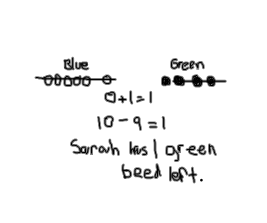 Blue Green
0+1=1
10-9=1
Sarah has 1 green
beed left.